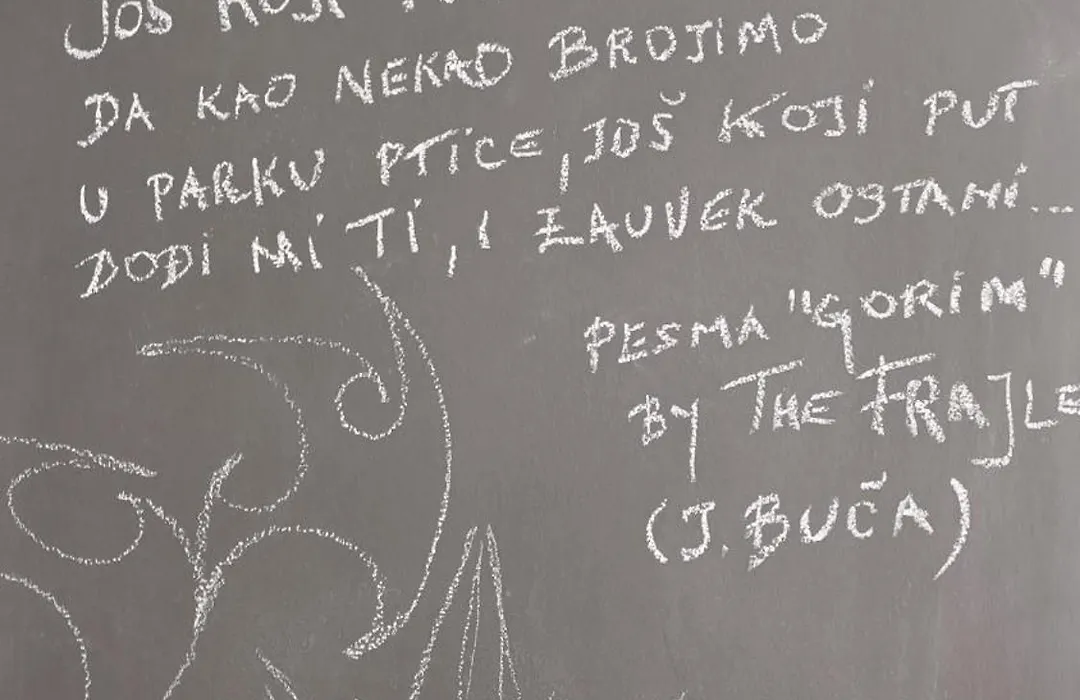 JOŠ KOJI
DA KAO NEKAD BROJIMO
U PARKU PTICE, JOŠ KOJI PUT
DOĐI MI TI, I ZAUVEK OSTANI...
PESMA "GORIM"
BY THE FRAJLE
(J. BUČA)